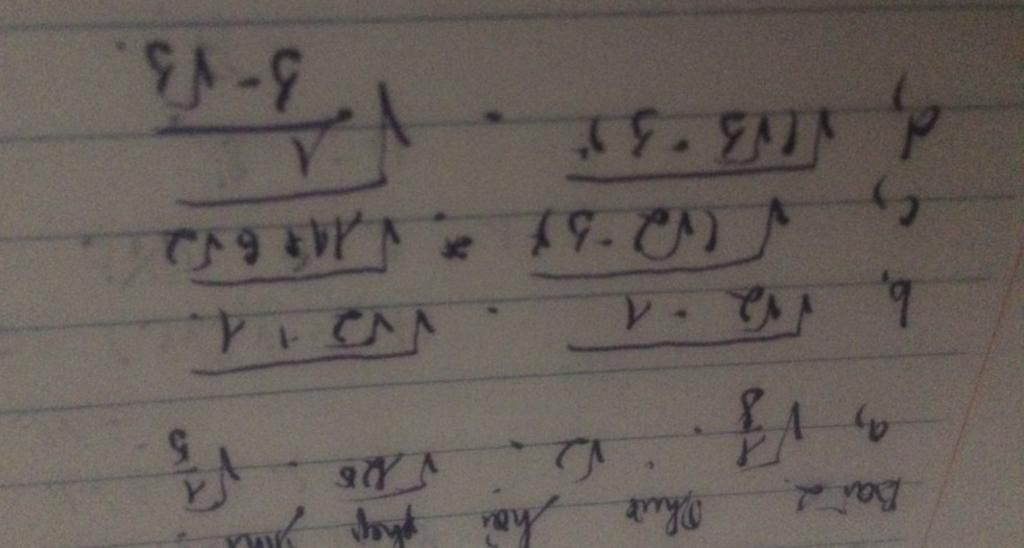 Bài 2. Thực hiện phép tính
a, √1/8 . √2 . √125 . √1/5
b, √(√2 - 1) . √(√2 + 1)
c, √(√2 - 3)² . √(11 + 6√2)
d, √(√3 - 3)² . √(1/(3 - √3))